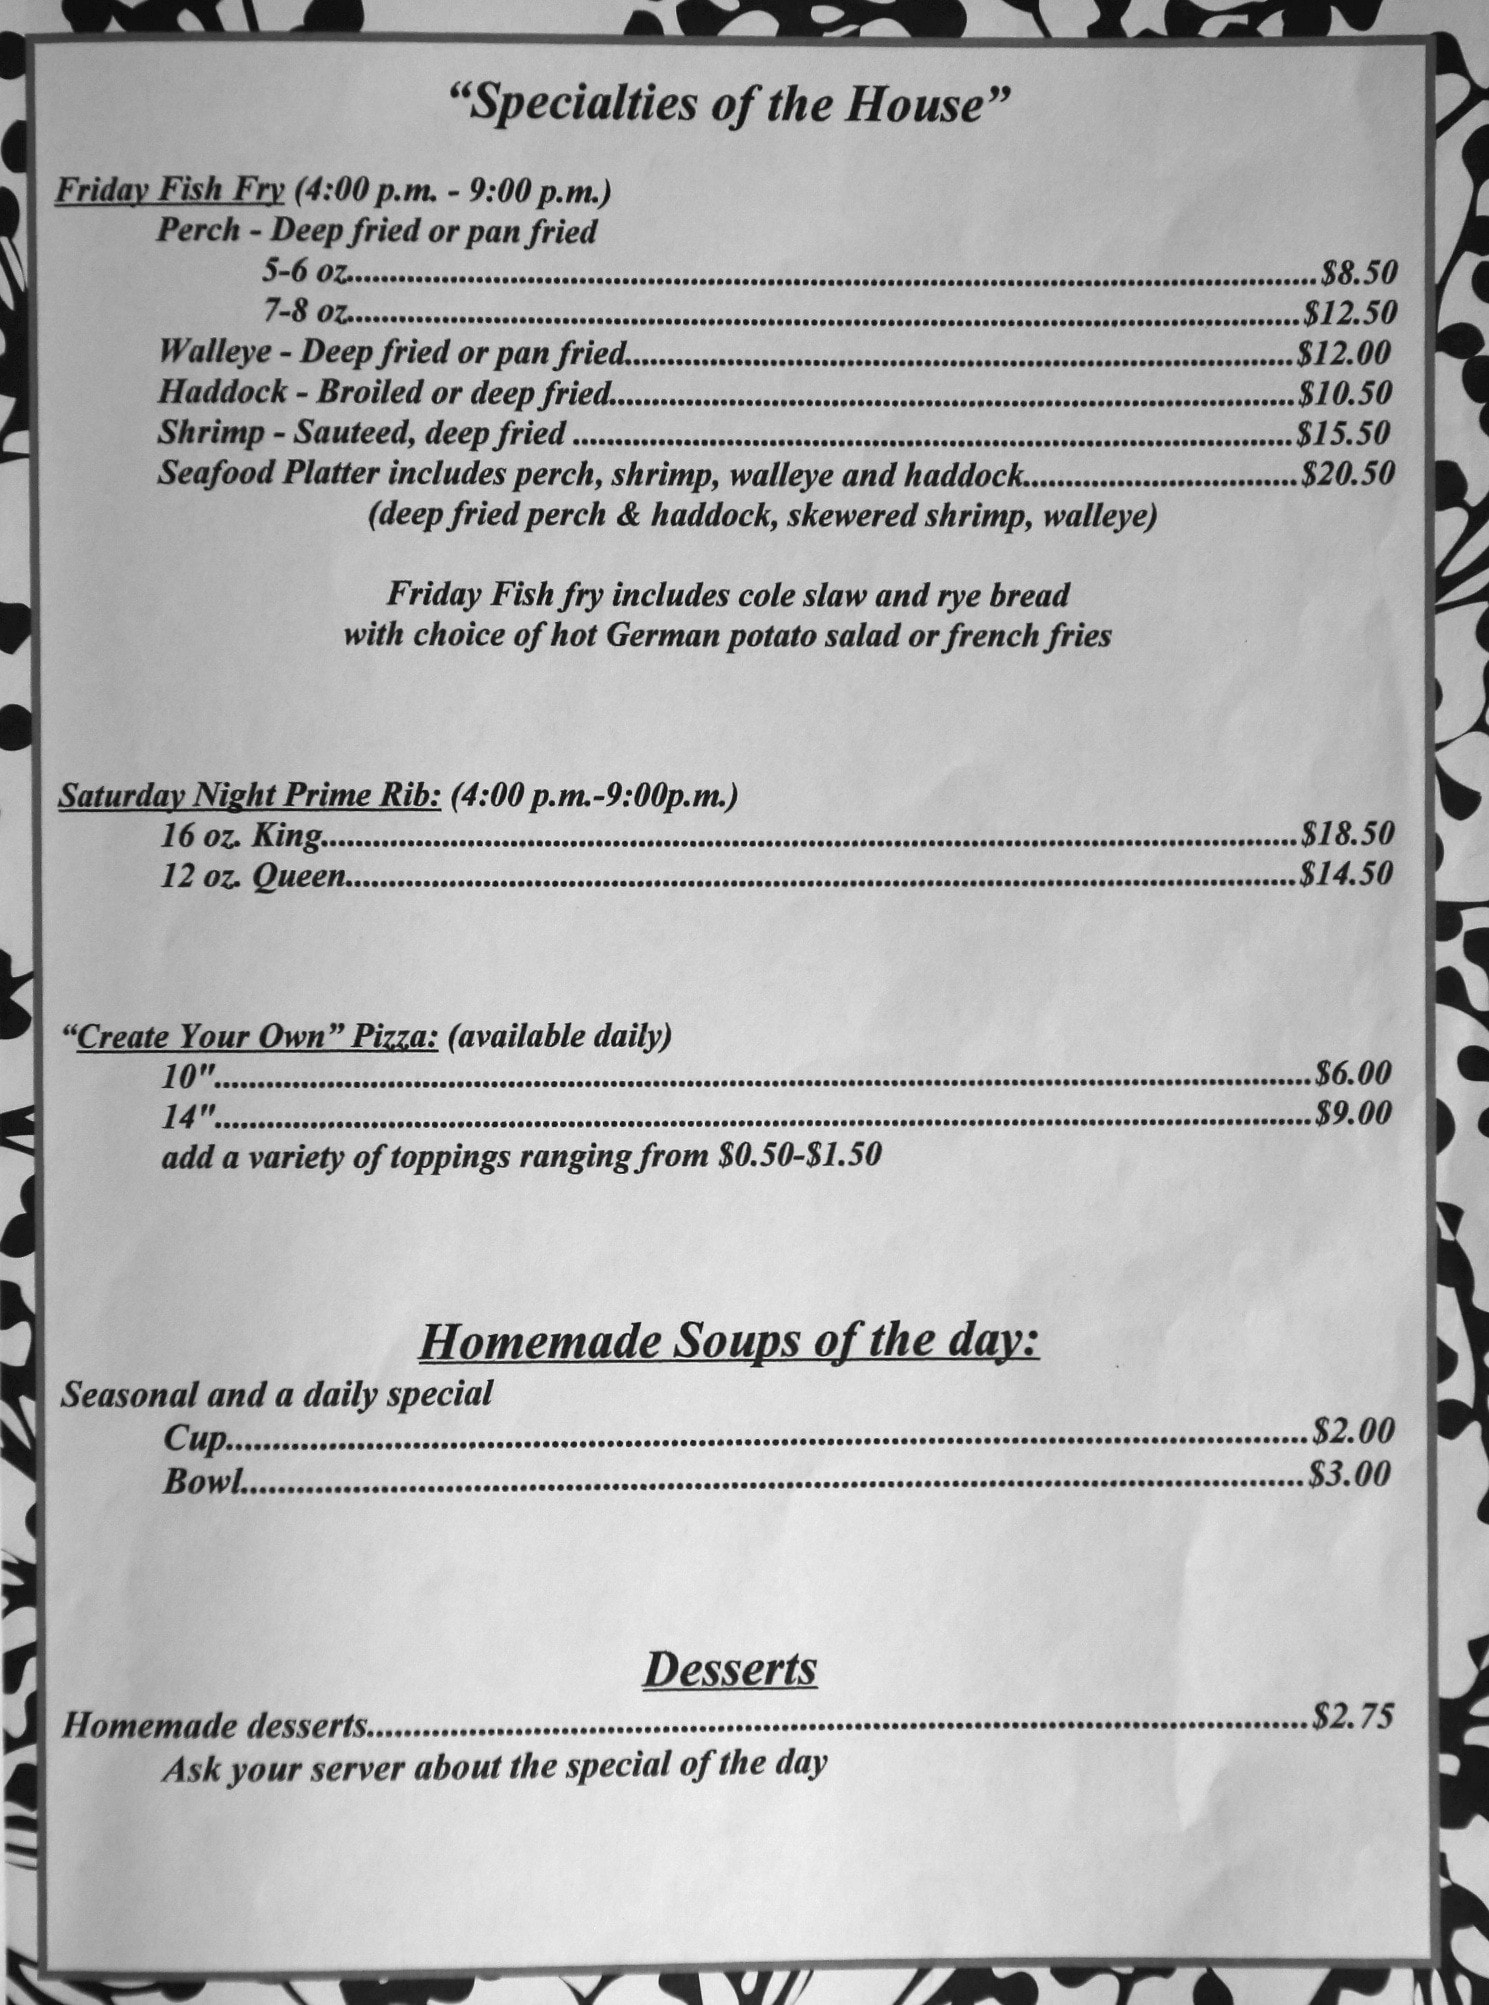 “Specialties of the House”
Friday Fish Fry (4:00 p.m. - 9:00 p.m.)
Perch - Deep fried or pan fried
5-6 oz....................$8.50
7-8 oz....................$12.50
Walleye - Deep fried or pan fried....................$12.00
Haddock - Broiled or deep fried....................$10.50
Shrimp - Sauteed, deep fried ....................$15.50
Seafood Platter includes perch, shrimp, walleye and haddock....................$20.50
(deep fried perch & haddock, skewered shrimp, walleye)
Friday Fish fry includes cole slaw and rye bread
with choice of hot German potato salad or french fries
Saturday Night Prime Rib: (4:00 p.m.-9:00p.m.)
16 oz. King....................$18.50
12 oz. Queen....................$14.50
“Create Your Own” Pizza: (available daily)
10"....................$6.00
14"....................$9.00
add a variety of toppings ranging from $0.50-$1.50
Homemade Soups of the day:
Seasonal and a daily special
Cup....................$2.00
Bowl....................$3.00
Desserts
Homemade desserts....................$2.75
Ask your server about the special of the day